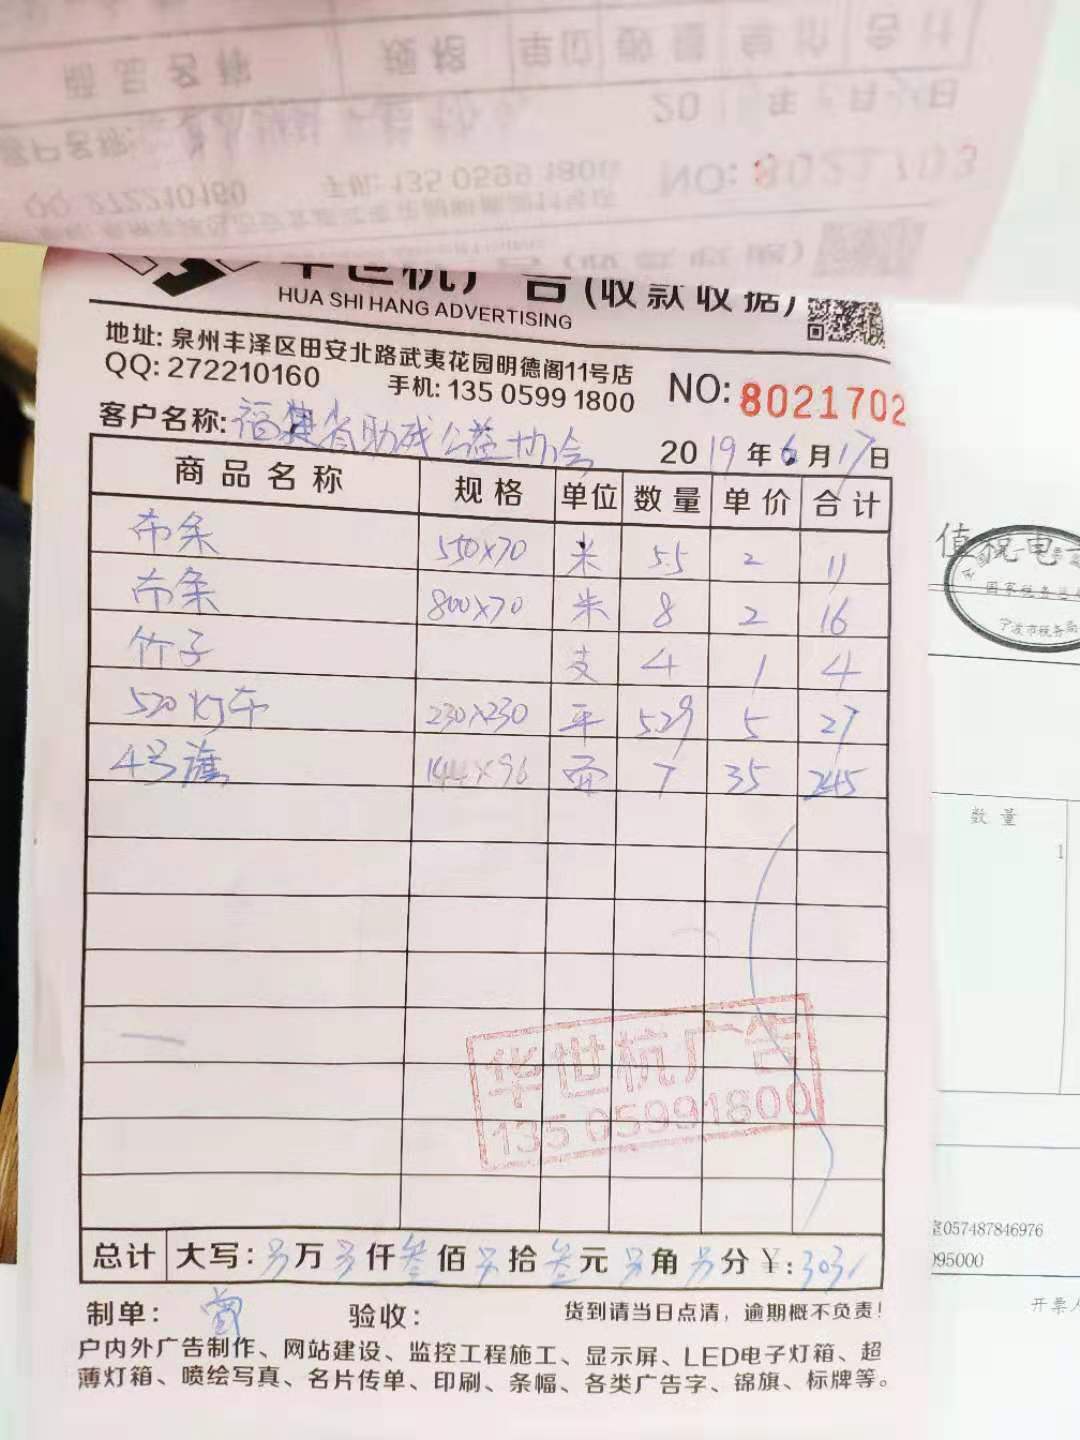 商品名称 规格 单位 数量 单价 合计
20 年 月 日
客户名称:
NO: 8021703
手机: 135 0599 1800
QQ: 272210160
华世杭广告(收款收据)
HUA SHI HANG ADVERTISING
地址: 泉州丰泽区田安北路武夷花园明德阁11号店
QQ: 272210160 手机: 135 0599 1800
NO: 8021702
客户名称: 福建省助残公益协会 2019年6月17日
商品名称 规格 单位 数量 单价 合计
布条 550×70 米 5.5 2 11
布条 800×70 米 8 2 16
竹子 支 4 1 4
520灯布 230×230 平 5.29 5 27
4号旗 144×96 面 7 35 245
华世杭广告
135 05991800
总计 大写: 万 仟 叁佰 拾 叁元 角 分 ¥: 303
制单: 曾 验收: 货到请当日点清，逾期概不负责!
户内外广告制作、网站建设、监控工程施工、显示屏、LED电子灯箱、超
薄灯箱、喷绘写真、名片传单、印刷、条幅、各类广告字、锦旗、标牌等。
值税电
国家税务总局
宁波市税务局
数量
1
057487846976
95000
开票人